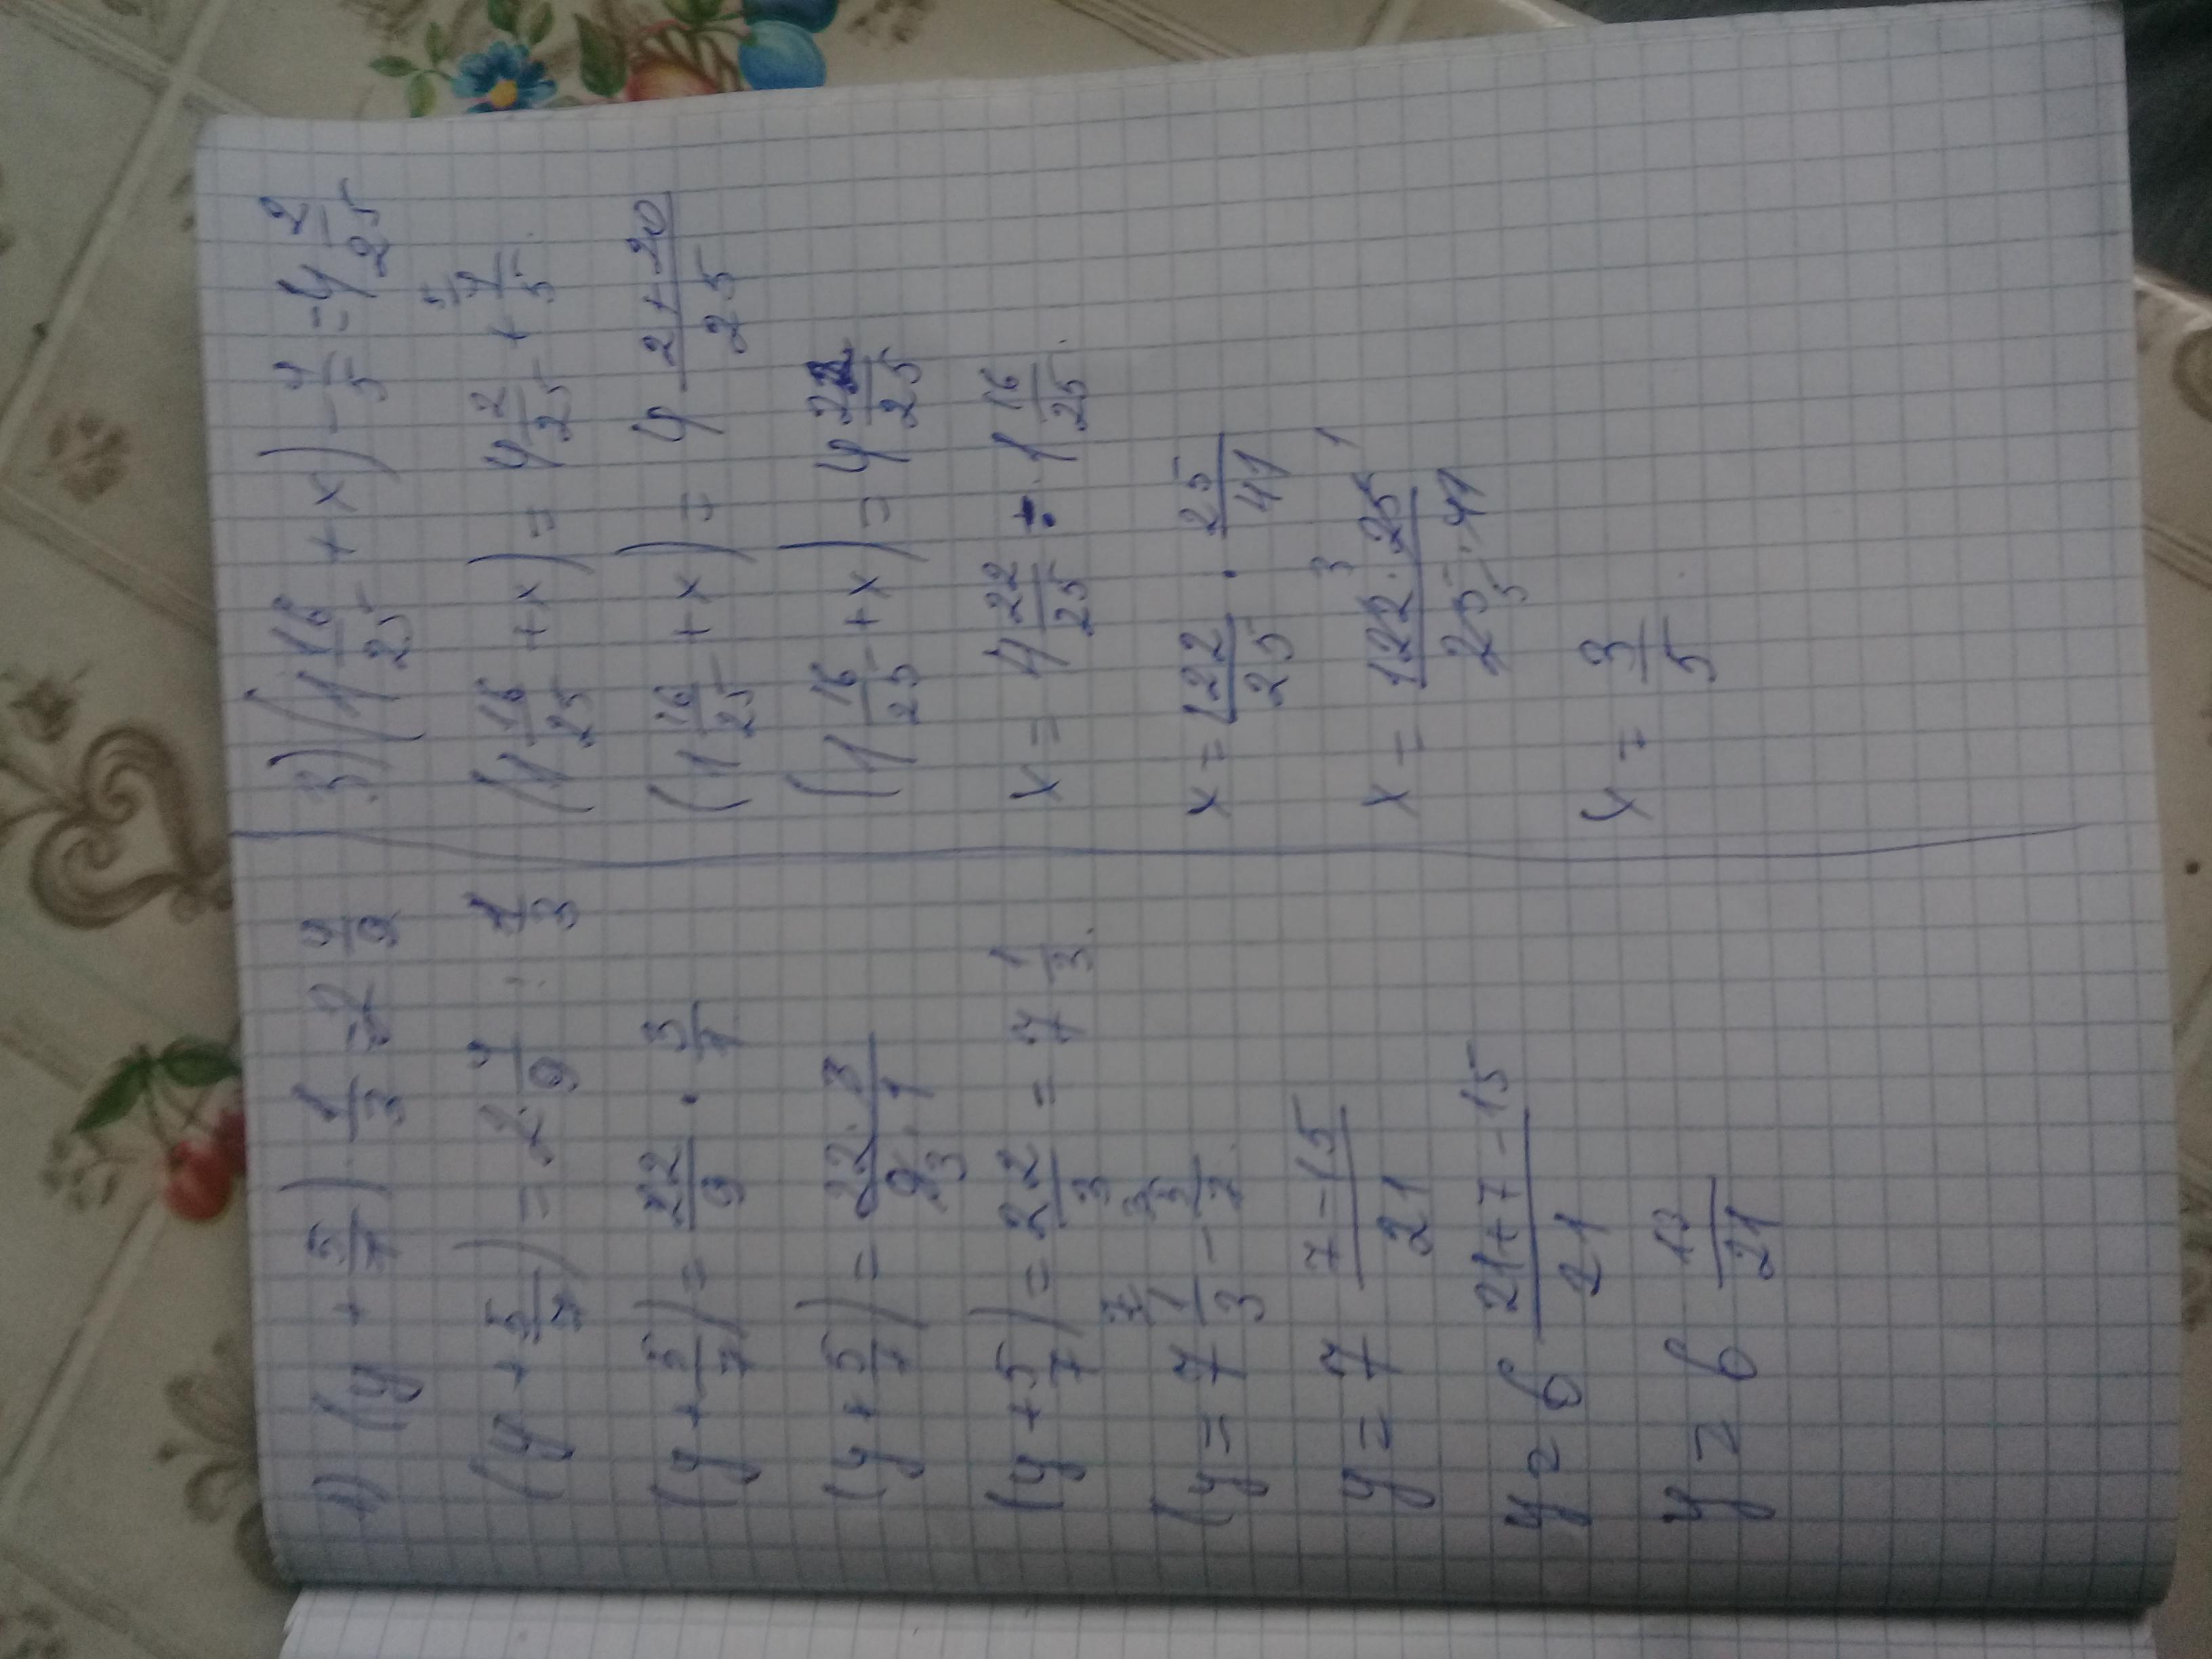 1) (y + 5/7) · 1/3 = 2 4/9
(y + 5/7) = 2 4/9 : 1/3
(y + 5/7) = 22/9 · 3/1
(y + 5/7) = 22·3/9·1 3
(y + 5/7) = 22/3 = 7 1/3
(y = 7 1/3 7 - 5/7 3
y = 7 7-15/21
y = 6 21+7-15/21
y = 6 13/21
3) (1 16/25 + x) - 4/5 = 4 2/25
(1 16/25 + x) = 4 2/25 + 4/5 5
(1 16/25 + x) = 4 2+20/25
(1 16/25 + x) = 4 22/25
x = 4 22/25 : 1 16/25
x = 122/25 · 25/41
x = 122·25/25·41 3 1 5
x = 3/5